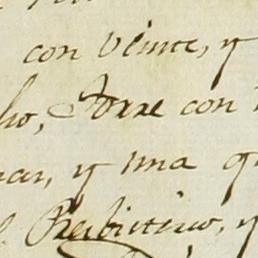 con veinte, y
lho, Torre con
nar, y una q
Presbitero, y